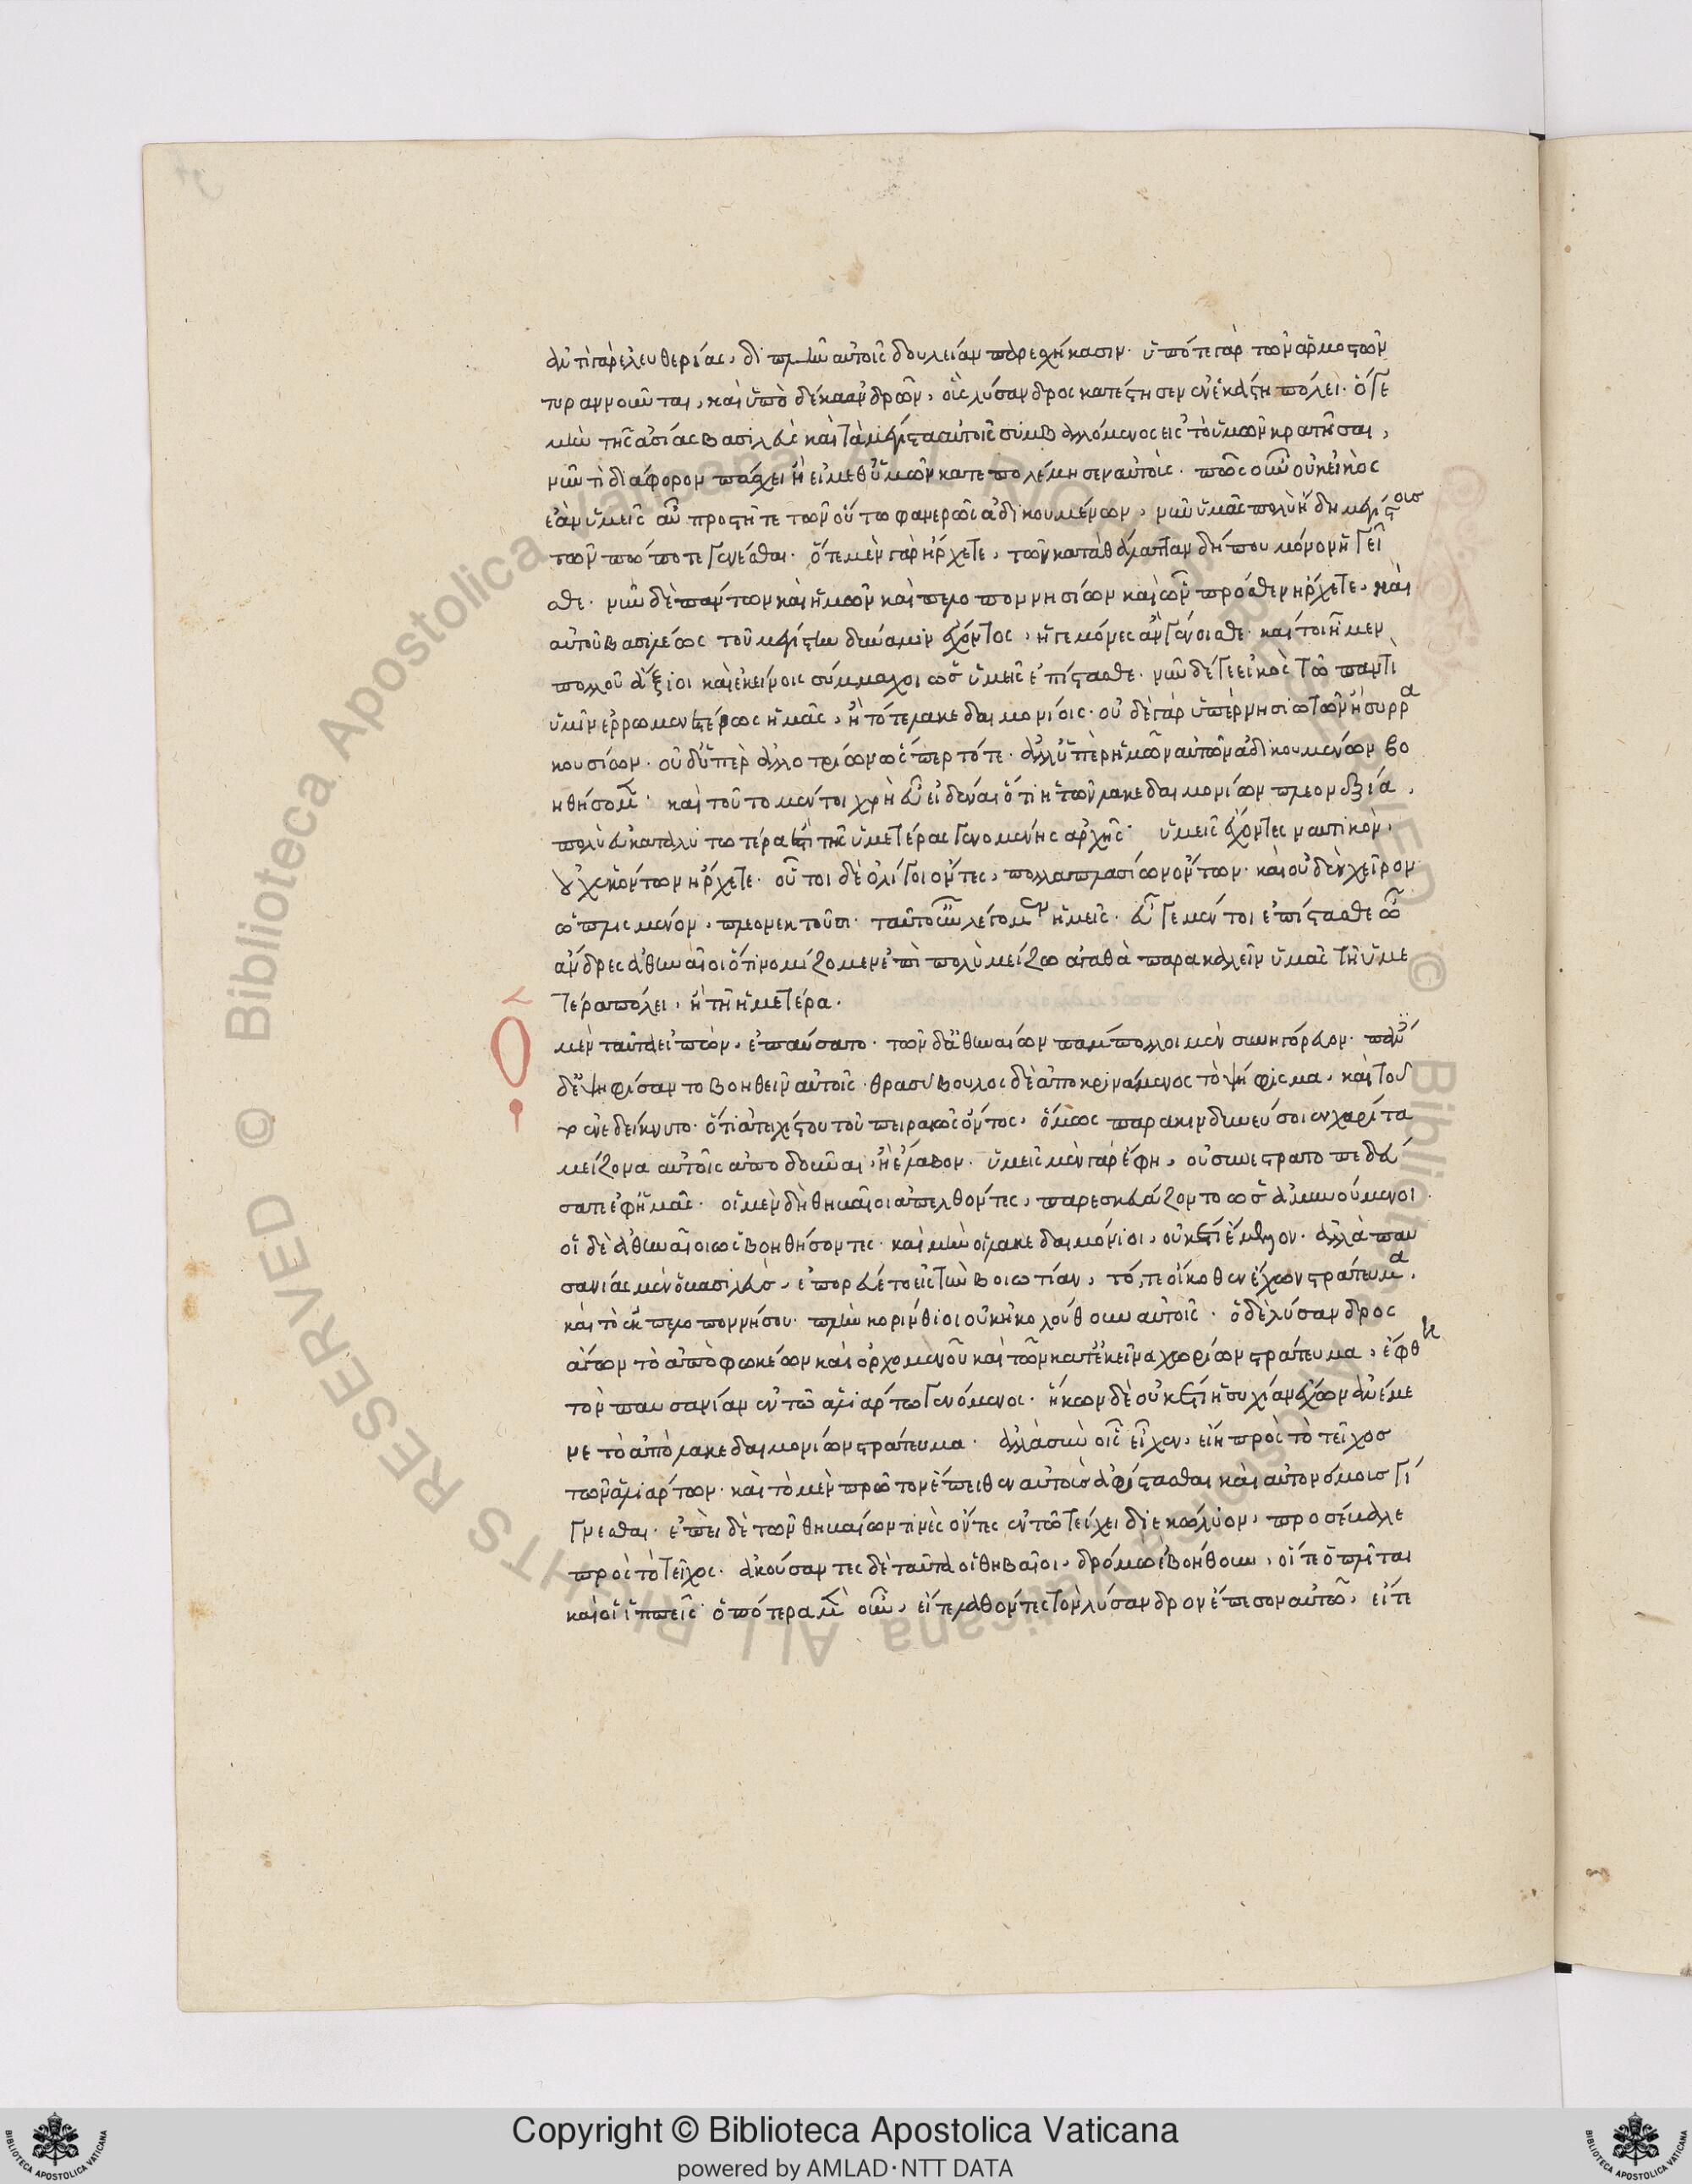 ἀντὶ γὰρ ἐλευθερίας, διπλῆν αὐτοῖς δουλείαν παρεσχήκασιν· ὑπό τε γὰρ τῶν ἁρμοστῶν
τυραννοῦνται, καὶ ὑπὸ δέκα ἀνδρῶν, οὓς λύσανδρος κατέστησεν ἐν ἑκάστη πόλει· ὅ γε
μὴν τῆς ἀσίας βασιλεὺς καὶ τὰ μέγιστα αὐτοῖς συμβαλλόμενος εἰς τὸ ὑμῶν κρατῆσαι,
νῦν τί διάφορον πάσχει ἢ εἰ μεθ' ὑμῶν κατεπολέμησεν αὐτούς· πῶς οὖν οὐκ εἰκὸς
ἐὰν ὑμεῖς αὖ προστῆτε τῶν οὕτω φανερῶς ἀδικουμένων, νῦν ὑμᾶς πολὺ ἤδη μεγίστους
τῶν πώποτε γενέσθαι· ὅτε μὲν γὰρ ἤρχετε, τῶν κατὰ θάλατταν δήπου μόνον ἡγεῖ
σθε· νῦν δὲ πάντων καὶ ἡμῶν καὶ πελοποννησίων καὶ ὧν πρόσθεν ἤρχετε, καὶ
αὐτοῦ βασιλέως τοῦ μεγίστην δύναμιν ἔχοντος, ἡγεμόνες ἂν γένοισθε· καίτοι ἦμεν
πολλοῦ ἄξιοι καὶ ἐκείνοις σύμμαχοι ὡς ὑμεῖς ἐπίστασθε· νῦν δέ γε εἰκὸς τῶ παντὶ
ὑμῖν ἐρρωμενεστέρως ἡμᾶς, ἢ τότε λακεδαιμονίοις· οὐδὲ γὰρ ὑπὲρ νησιωτῶν ἢ συρρα
κουσίων· οὐδ' ὑπὲρ ἀλλοτρίων ὥσπερ τότε· ἀλλ' ὑπὲρ ἡμῶν αὐτῶν ἀδικουμένων βο
ηθήσομεν· καὶ τοῦτο μέντοι χρὴ εὖ εἰδέναι ὅτι ἡ τῶν λακεδαιμονίων πλεονεξία,
πολὺ εὐκαταλυτωτέρα ἐστὶ τῆς ὑμετέρας γενομένης ἀρχῆς· ὑμεῖς ἔχοντες ναυτικὸν,
οὐχ ἑκόντων ἤρχετε· οὗτοι δὲ ὀλίγοι ὄντες, πολλαπλασίων ὄντων· καὶ οὐδὲν χεῖρον
ὡπλισμένων, πλεονεκτοῦσι· ταῦτ' οὖν λέγομεν ἡμεῖς· εὖ γε μέντοι ἐπίστασθε ὦ
ἄνδρες ἀθηναῖοι ὅτι νομίζομεν ἐπὶ πολὺ μείζω ἀγαθὰ παρακαλεῖν ὑμᾶς τῇ ὑμε
τέρα πόλει, ἢ τῇ ἡμετέρα.
Ὁ μὲν ταῦτα εἰπὼν, ἐπαύσατο· τῶν δ' ἀθηναίων πάμπολλοι μὲν συνηγόρευον· πάντες
δ' ἐψηφίσαντο βοηθεῖν αὐτοῖς· θρασύβουλος δὲ ἀποκρινάμενος τὸ ψήφισμα, καὶ τοῦ
το ἐνεδείκνυτο· ὅτι ἀτειχίστου τοῦ πειραιῶς ὄντος, ὅμως παρακινδυνεύσοιεν χάριτα
μείζονα αὐτοῖς ἀποδοῦναι, ἢ ἔλαβον· ὑμεῖς μὲν γὰρ ἔφη, οὐ συνεστρατοπεδεύ
σατε ἐφ' ἡμᾶς· οἱ μὲν δὴ θηβαῖοι ἀπελθόντες, παρεσκευάζοντο ὡς ἀμυνούμενοι·
οἱ δὲ ἀθηναῖοι ὡς βοηθήσοντες· καὶ μὴν οἱ λακεδαιμόνιοι, οὐκέτι ἔμελλον· ἀλλὰ παυ
σανίας μὲν ὁ βασιλεὺς, ἐπορεύετο εἰς τὴν βοιωτίαν, τό,τε οἴκοθεν ἔχων στράτευμα,
καὶ τὸ ἐκ πελοποννήσου· πλὴν κορίνθιοι οὐκ ἠκολούθουν αὐτοῖς· ὁ δὲ λύσανδρος
ἄγων τὸ ἀπὸ φωκέων καὶ ὀρχομενοῦ καὶ τῶν κατ' ἐκεῖνα χωρίων στράτευμα, ἔφθη
τὸν παυσανίαν ἐν τῶ ἁλιάρτω γενόμενος· ἥκων δὲ οὐκέτι ἡσυχίαν ἔχων ἀνέμε
νε τὸ ἀπὸ λακεδαιμονίων στράτευμα· ἀλλὰ σὺν οἷς εἶχεν, εἴη πρὸς τὸ τεῖχος
τῶν ἁλιαρτίων· καὶ τὸ μὲν πρῶτον ἔπειθεν αὐτοὺς ἀφίστασθαι καὶ αὐτονόμους γί
γνεσθαι· ἐπεὶ δὲ τῶν θηβαίων τινὲς ὄντες ἐν τῶ τείχει διεκώλυον, προσέβαλλε
πρὸς τὸ τεῖχος· ἀκούσαντες δὲ ταῦτα οἱ θηβαῖοι, δρόμω ἐβοήθουν, οἵ τε ὁπλῖται
καὶ οἱ ἱππεῖς· ὁπότερα μὲν οὖν, εἴτε λαθόντες τὸν λύσανδρον ἐπέπεσον αὐτῶ, εἴτε